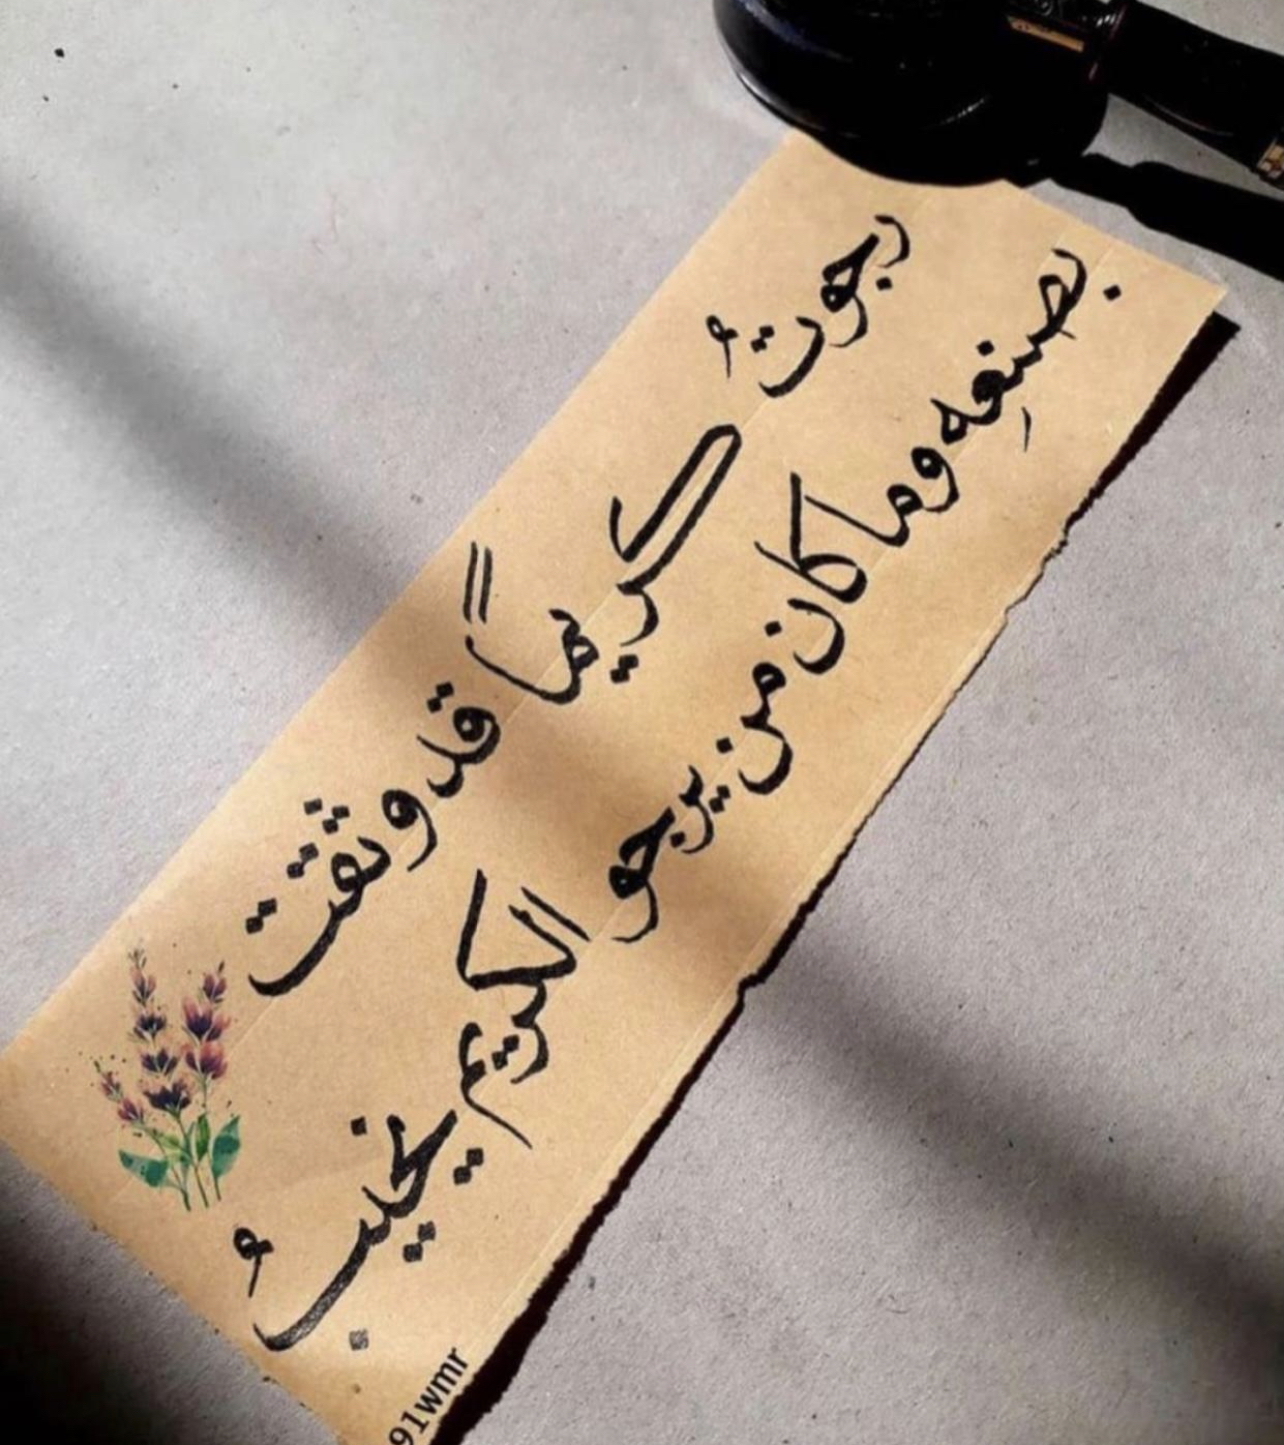 رجوتُ كريماً قد وثقت
بصنعِه وما كان من يرجو الكريم يخيبُ
91wmr